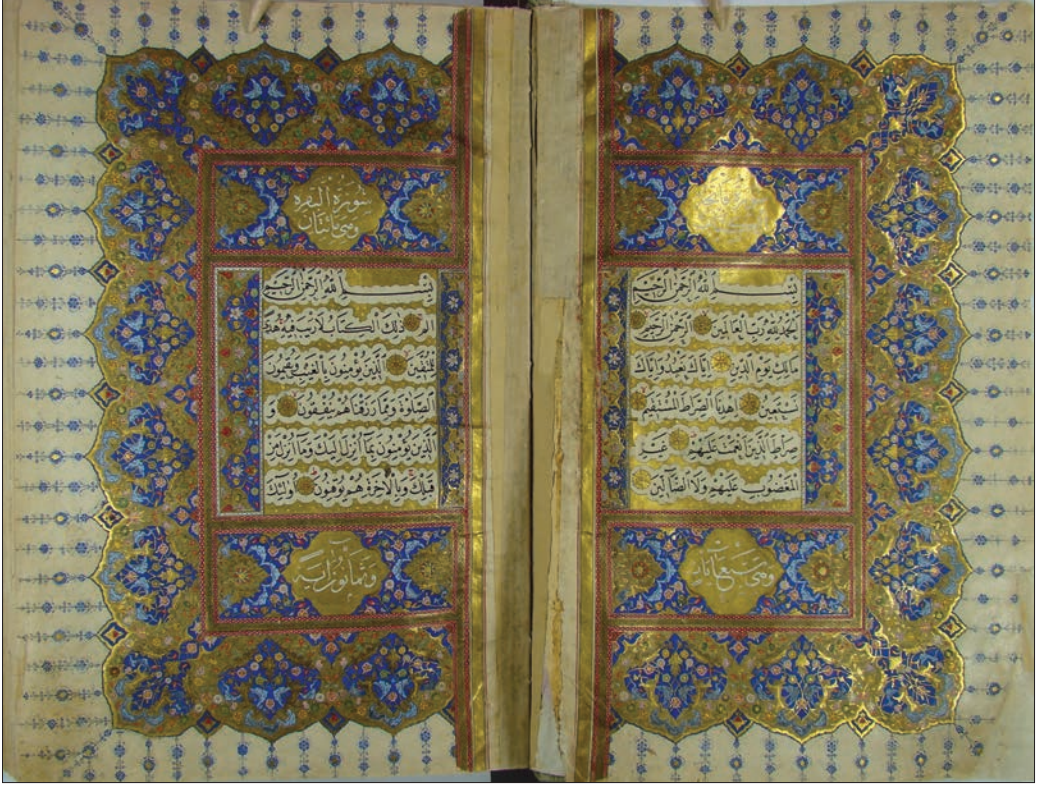 بِسْمِ اللهِ الرَّحْمٰنِ الرَّحِيمِ
اَلْحَمْدُ لِلّٰهِ رَبِّ الْعَالَمِينَ الرَّحْمٰنِ الرَّحِيمِ
مَالِكِ يَوْمِ الدِّينِ اِيَّاكَ نَعْبُدُ وَاِيَّاكَ
نَسْتَعِينُ اِهْدِنَا الصِّرَاطَ الْمُسْتَقِيمَ
صِرَاطَ الَّذِينَ اَنْعَمْتَ عَلَيْهِمْ غَيْرِ
الْمَغْضُوبِ عَلَيْهِمْ وَلَا الضَّالِّينَ
وهى سبع آيات
سُورَةُ الْبَقَرَة
وهى مائتان
بِسْمِ اللهِ الرَّحْمٰنِ الرَّحِيمِ
الم ذٰلِكَ الْكِتَابُ لَا رَيْبَ فِيهِ هُدًى
لِلْمُتَّقِينَ الَّذِينَ يُؤْمِنُونَ بِالْغَيْبِ وَيُقِيمُونَ
الصَّلٰوةَ وَمِمَّا رَزَقْنَاهُمْ يُنْفِقُونَ وَ
الَّذِينَ يُؤْمِنُونَ بِمَا اُنْزِلَ اِلَيْكَ وَمَا اُنْزِلَ مِنْ
قَبْلِكَ وَبِالْاٰخِرَةِ هُمْ يُوقِنُونَ اُولٰئِكَ
وثمانون آية